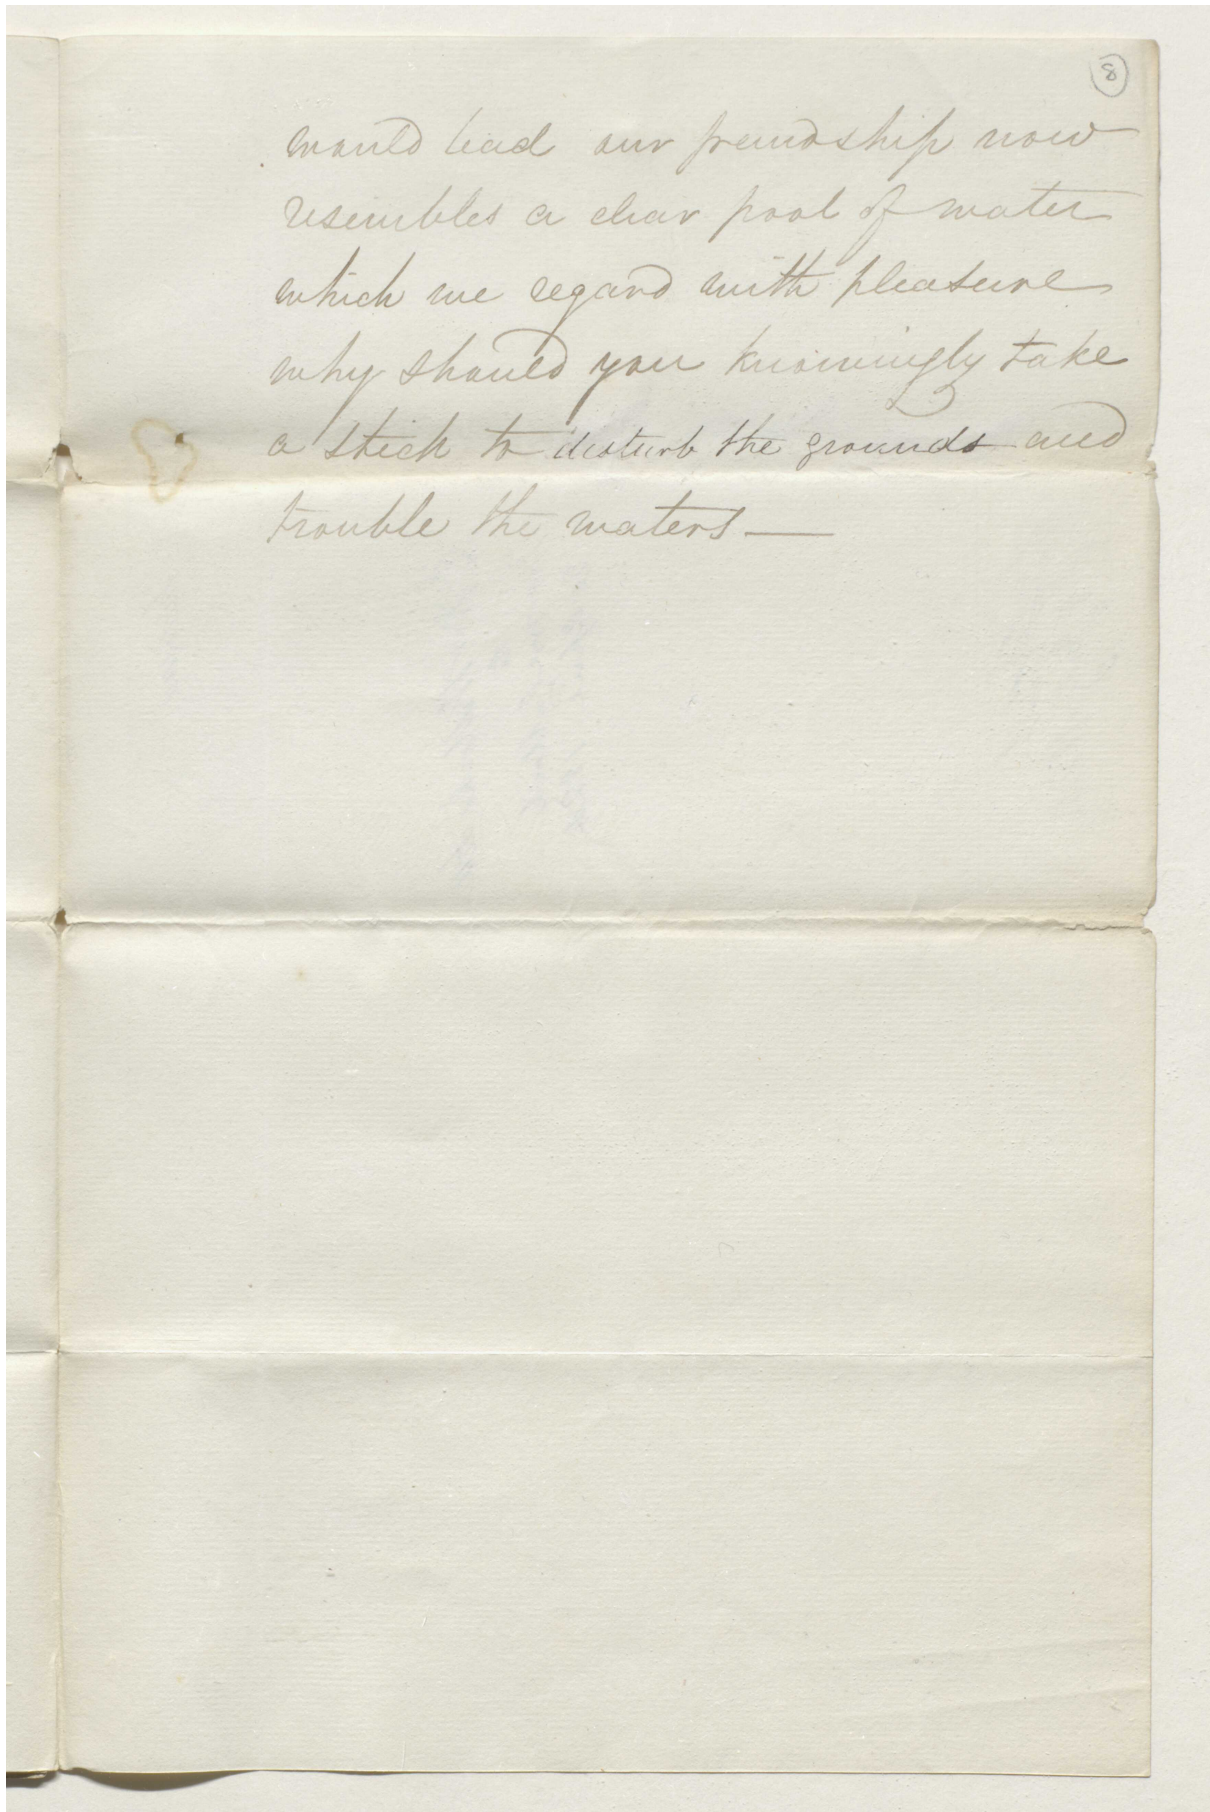 8
would lead our friendship now
resembles a clear pool of water
which we regard with pleasure
why should you knowingly take
a stick to disturb the grounds and
trouble the waters —